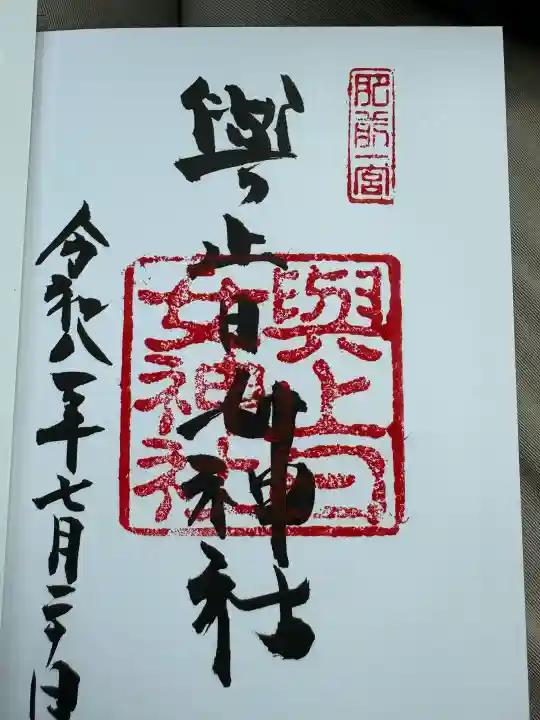 肥前一宮
與止日女神社
與止日
女神社
令和八年七月二十日